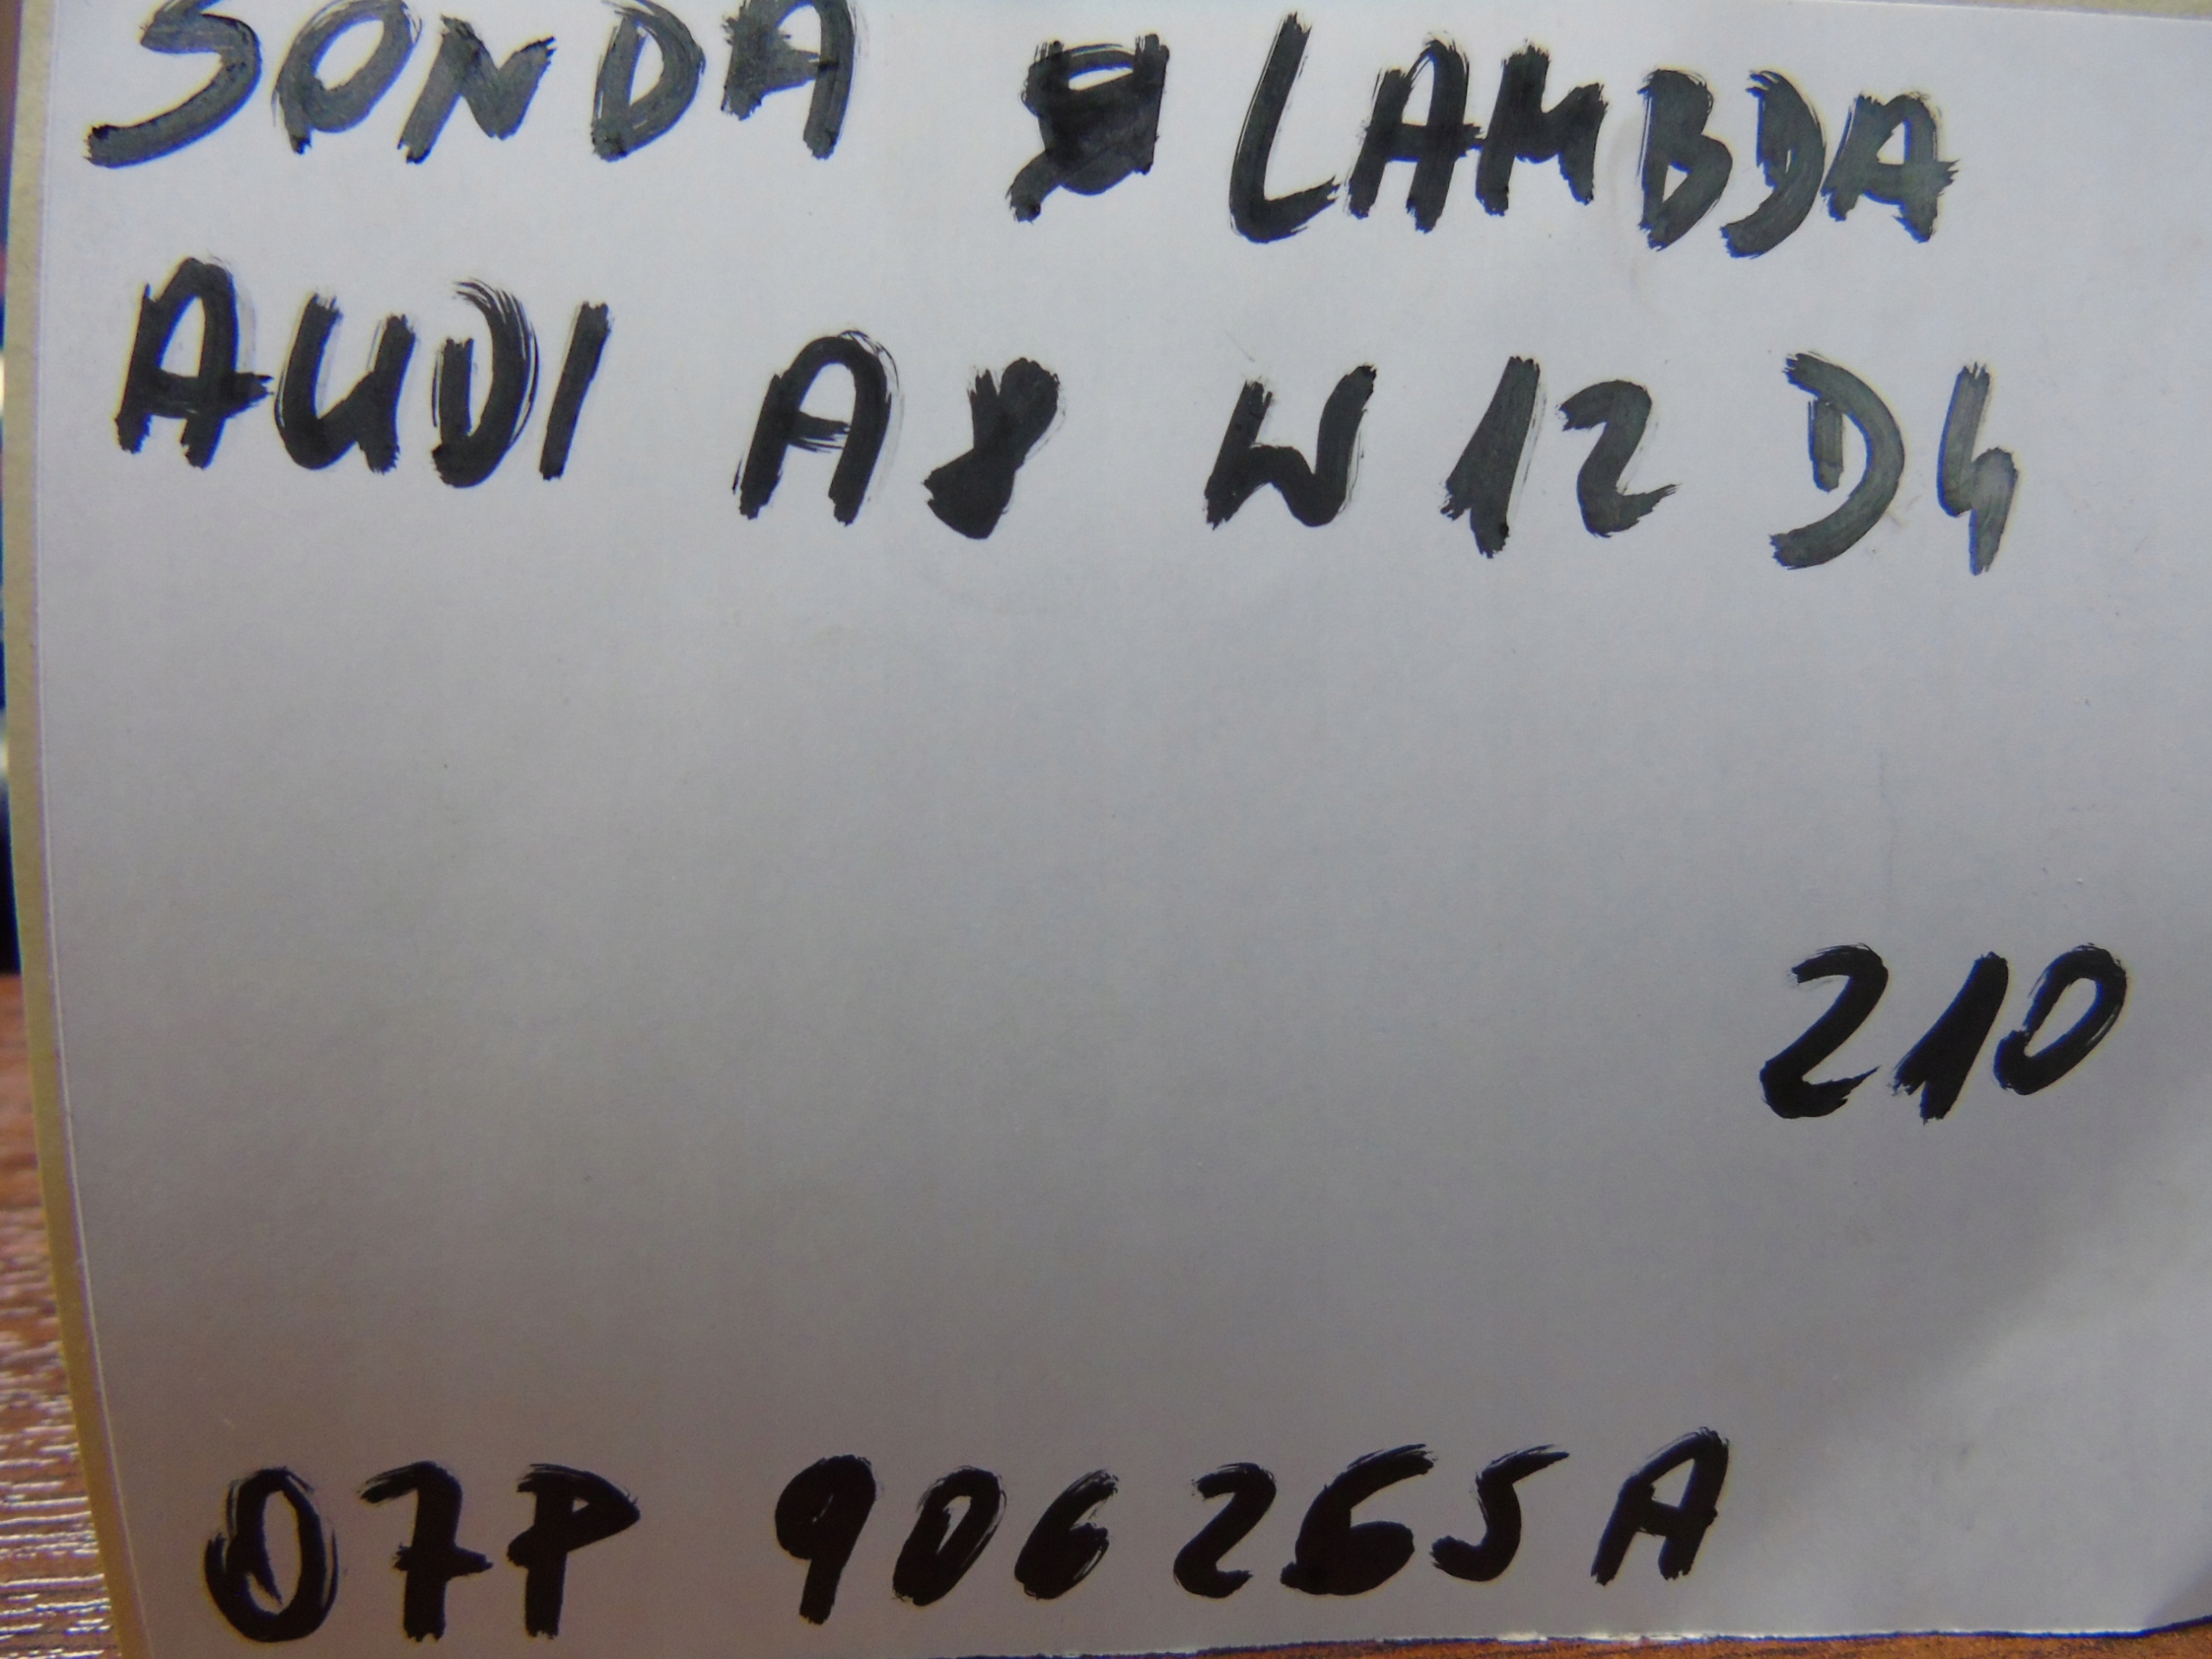 SONDA LAMBDA
AUDI A8 W12 D4
210
07P 906265A